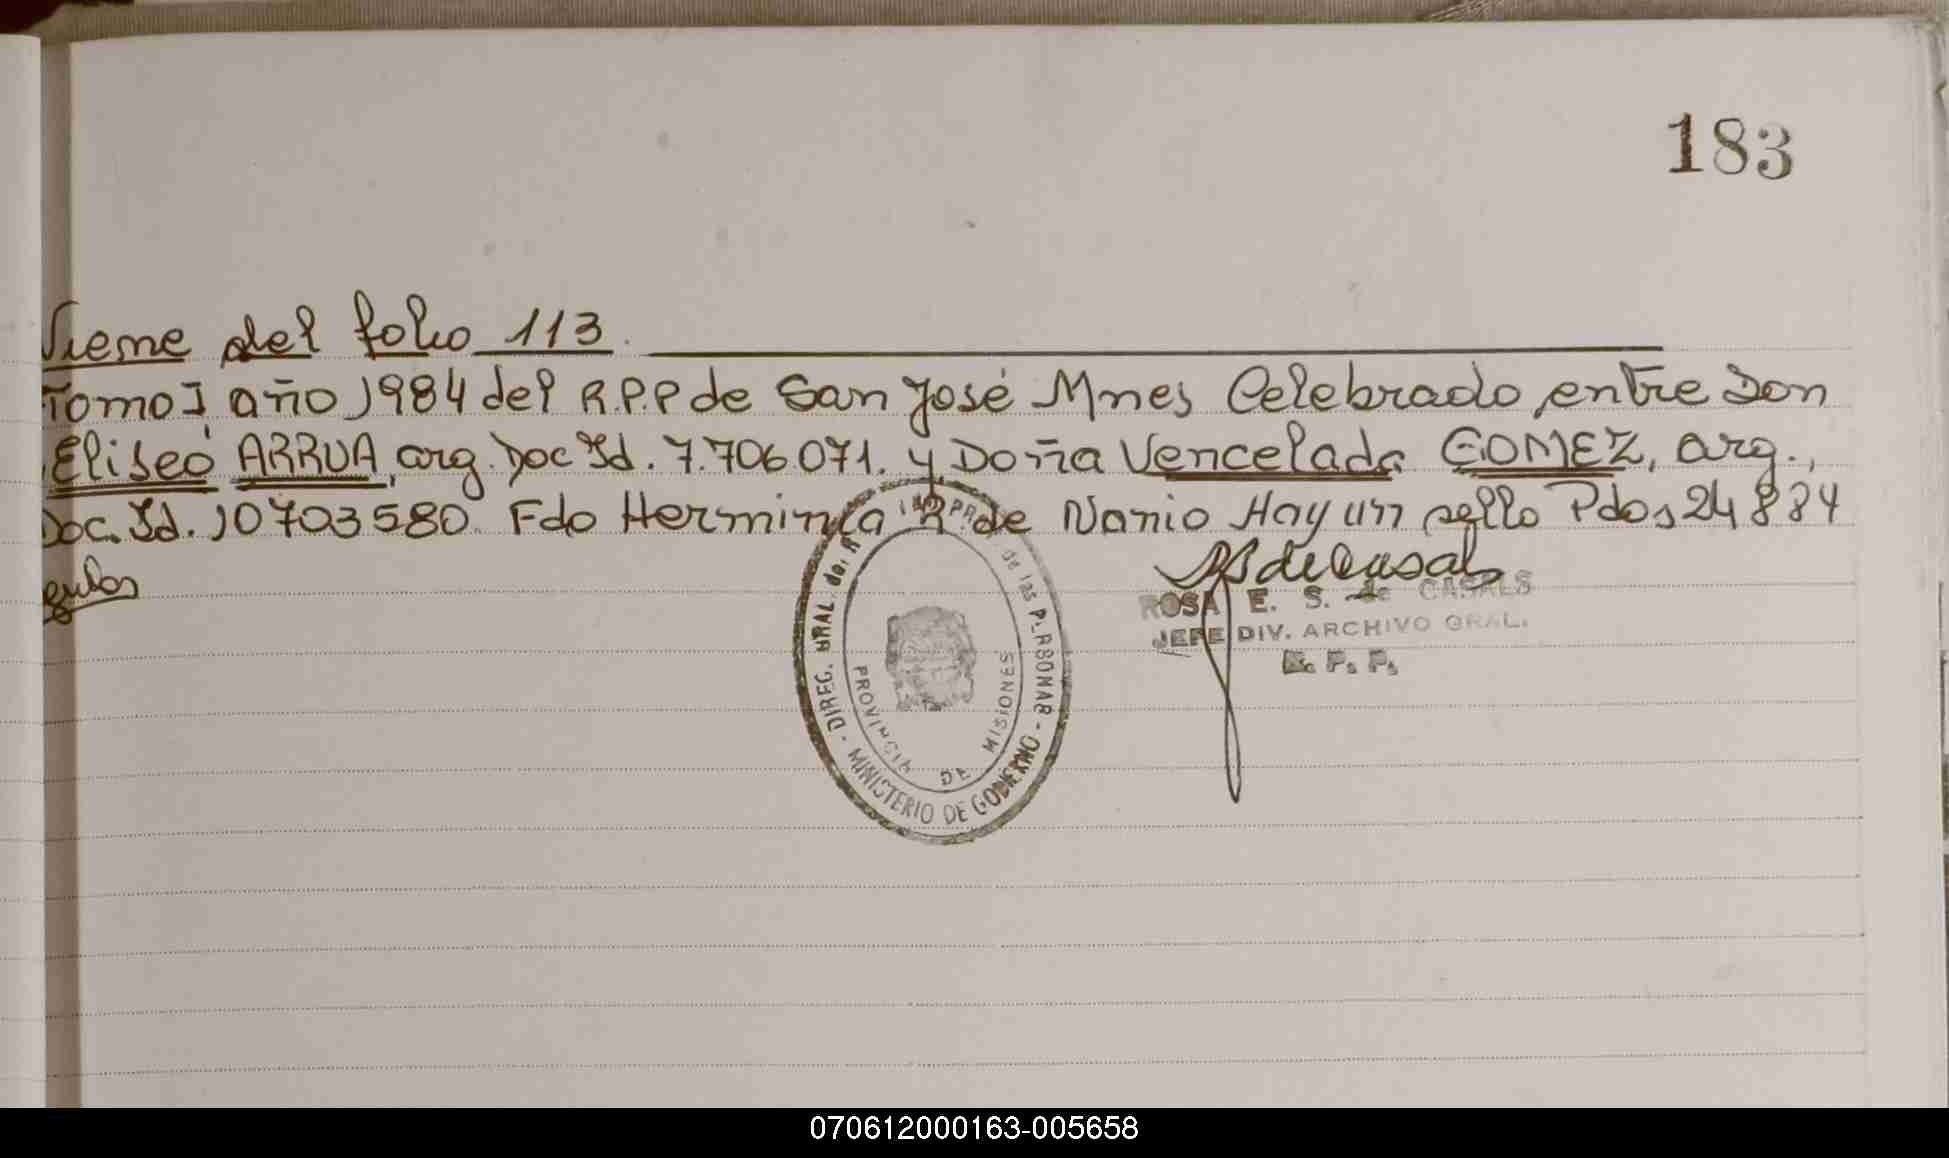 183
Viene del folio 113.
Tomo I año 1984 del R.P.P de San José Mnes Celebrado entre Don
Eliseo ARRUA, arg. Doc Id. 7.706.071. y Doña Vencelada GOMEZ, arg.,
Doc. Id. 10703580. Fdo Herminia R de Nanio Hay un sello Pdos 24 8 84
ROSA E. S. de CASALS
JEFE DIV. ARCHIVO GRAL.
R. P. P.
DIREC. GRAL. de de las PERSONAS - MINISTERIO DE GOBIERNO -
PROVINCIA DE MISIONES
070612000163-005658